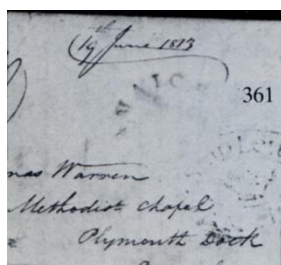 19th June 1813
361
nas Warren
Methodist Chapel
Plymouth Dock